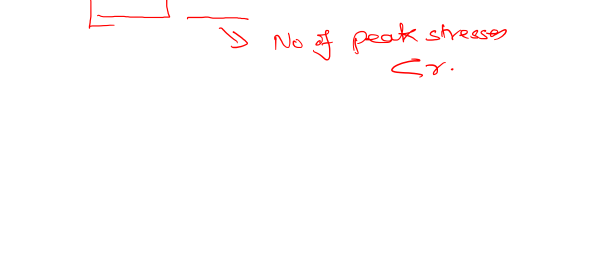 No of peak stresses